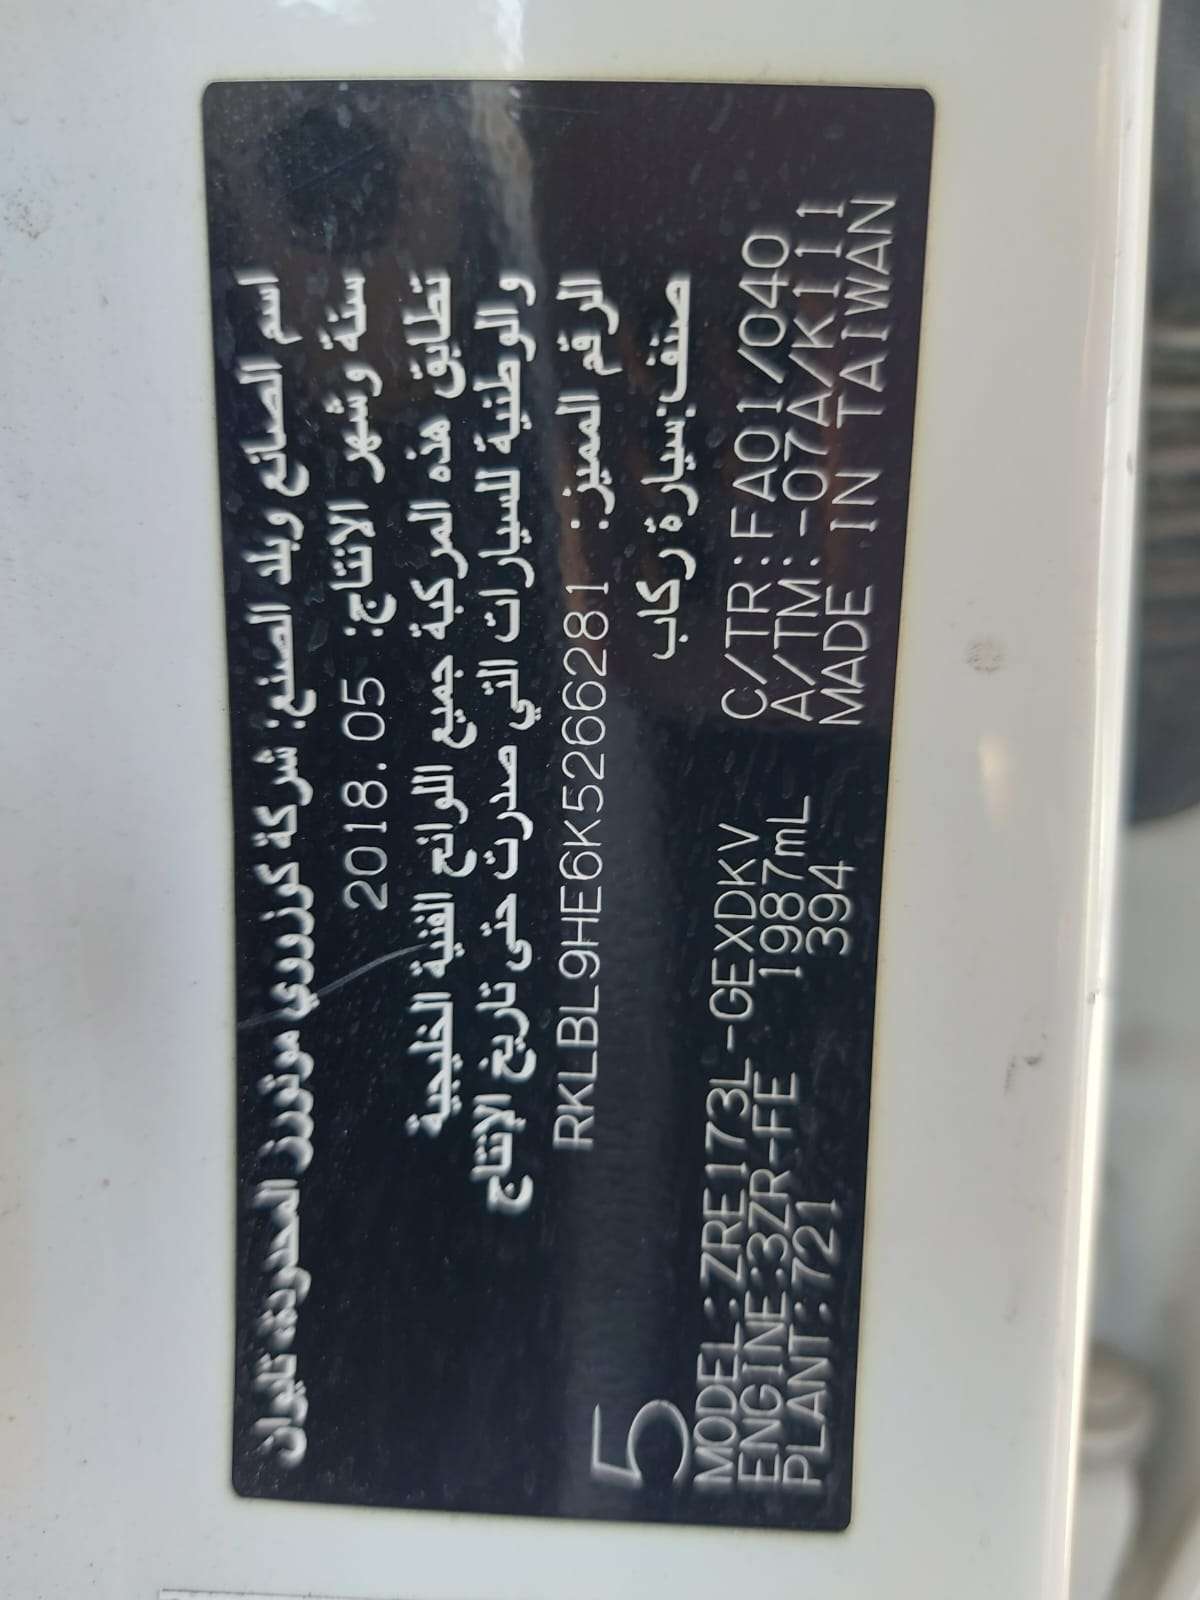 اسم الصانع وبلد الصنع: شركة كوزروي موتورز المحدودة، تايوان
سنة وشهر الانتاج: 2018.05
تطابق هذه المركبة جميع اللوائح الفنية الخليجية
والوطنية للسيارات التي صدرت حتى تاريخ الإنتاج
الرقم المميز: RKLBL9HE6K5266281
صنف:سيارة ركاب
5
MODEL:ZRE173L-GEXDKV C/TR:FA01/040
ENGINE:3ZR-FE 1987mL A/TM:-07A/K111
PLANT:721 394 MADE IN TAIWAN